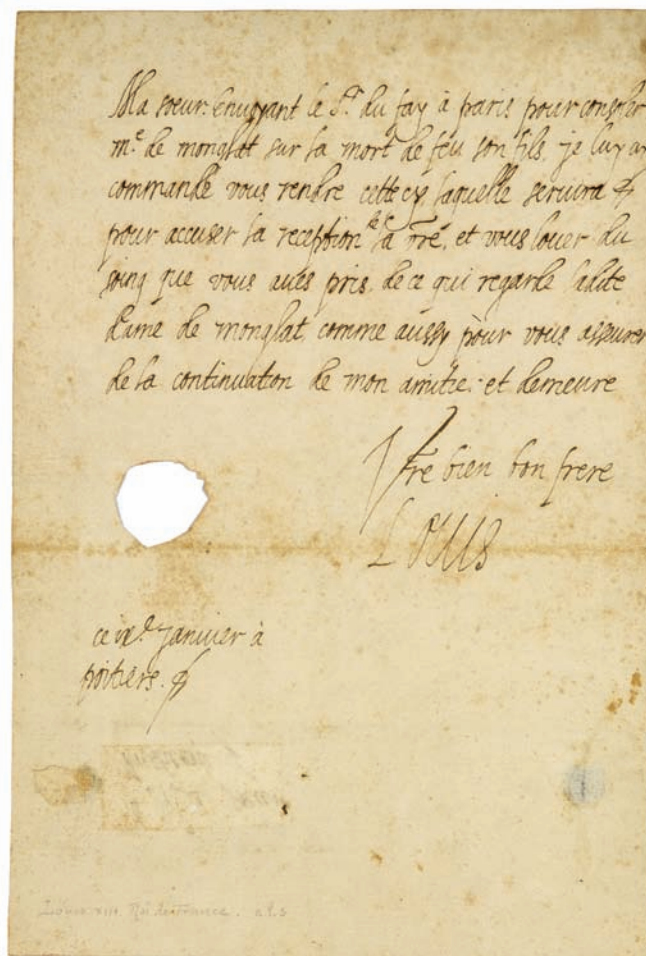 Ma soeur. Envoyant le Sr. du fay à paris pour consoler
me. de monglat sur la mort de feu son fils, je luy ay
commandé vous rendre cettecy, laquelle servira
pour accuser la reception de la vre, et vous louer du
soing que vous avés pris de ce qui regarde ladite
dame de monglat, comme aussy pour vous asseurer
de la continuation de mon amitie. et demeure
Vre bien bon frere
Louis
Janvier à
poitiers.
Louis XIII. Roi de France. a.l.s